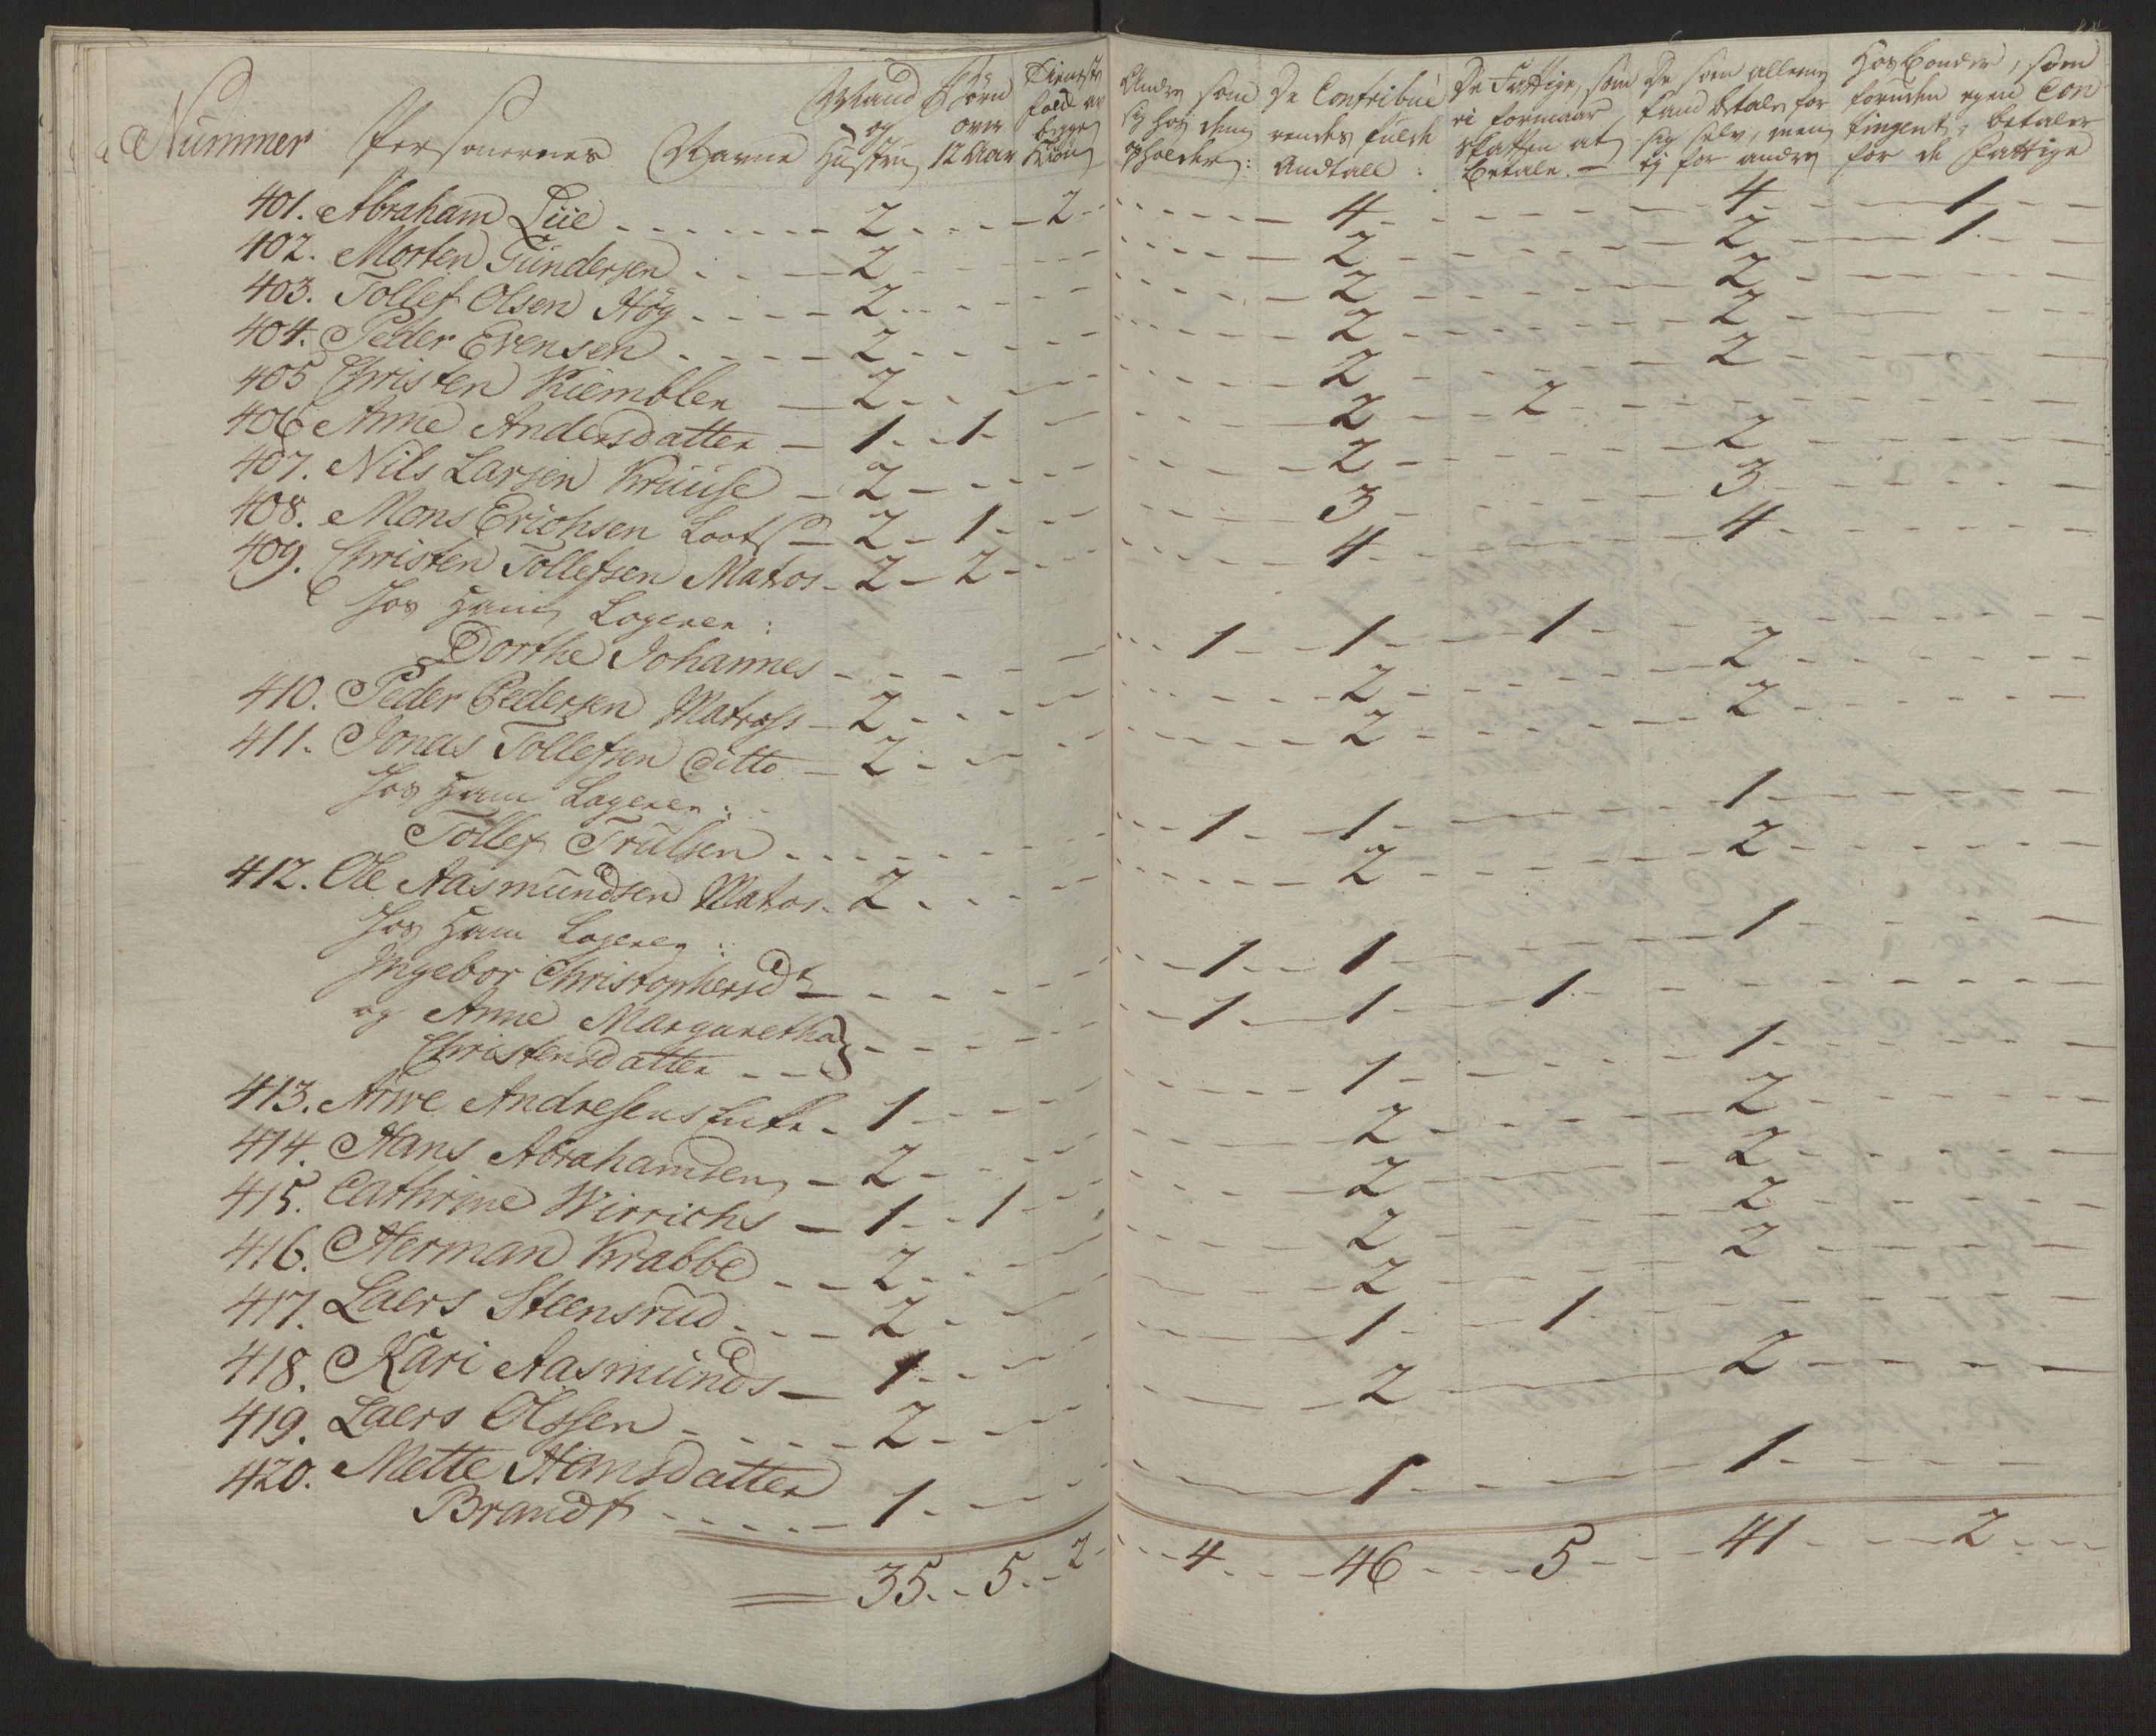 Nummer Personernes Navne Mand og Hustru Börn over 12 Aar Tieneste folk av begge Kiön Andre som sig hos dem opholder: De Contribue rendes fulde Andtall: De Fattige, som ei formaar Skatten at betale. — De som alleene kand betale for sig selv, men ej for andre Hosbonder, som foruden egen Con tingent, betaler for de fattige
401. Abraham Lüe 2 - 2 - 4 - 4 - 1
402. Morten Gundersen 2 - 2 - 2 - 1
403. Tollef Olsen Hög 2 - 2 - 2
404. Peder Evensen 2 - 2 - 2
405 Christen Kiemblen 2 - 2 - 2
406 Anne Andersdatter 1 - 1 - 2 - 2
407. Nils Larsen Kruuse 2 - 2 - 2
408. Mons Erichsen Loots 2 - 1 - 3 - 3
409. Christen Tollefsen Matros 2 - 2 - 4 - 4
Hos Ham Logerer:
Dorthe Johannes - 1 - 1 - 1
410. Peder Pedersen Matross 2 - 2 - 2
411. Jonas Tollefsen ditto 2 - 2 - 2
Hos Ham Logerer:
Tollef Trulsen - 1 - 1 - 1
412. Ole Aasmundsen Matros 2 - 2 - 2
Hos Ham Logerer:
Ingebor Christophersdt - 1 - 1 - 1
og Anne Margaretha } - 1 - 1 - 1
Christensdatter
413. Arve Andresens Enke 1 - 1 - 1
414. Hans Abrahamsen 2 - 2 - 2
415. Cathrine Wirrichs 1 - 1 - 2 - 2
416. Herman Krabbe 2 - 2 - 2
417. Laers Steensrud 2 - 2 - 2
418. Kari Aasmunds 1 - 1 - 1
419. Laers Olssen 2 - 2 - 2
420. Mette Hansdatter
Brandt 1 - 1 - 1
35 - 5 - 2 - 4 - 46 - 5 - 41 - 2